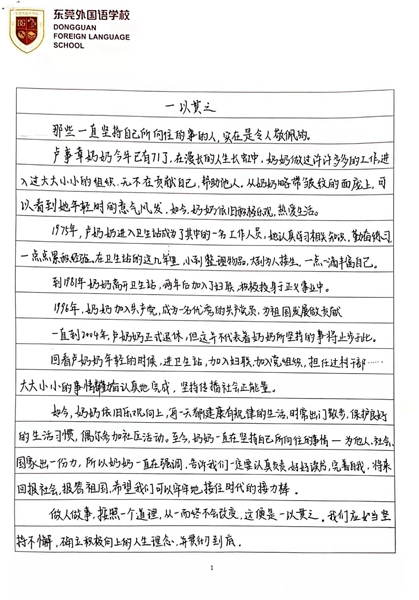 东莞外国语学校
DONGGUAN
FOREIGN LANGUAGE
SCHOOL
一以贯之
那些一直坚持自己所向往的事的人,实在是令人敬佩的。
卢事章奶奶今年已有71了,在漫长的人生长虹中,奶奶做过许许多多的工作,进
入过大大小小的组织,无不在贡献自己,帮助他人。从奶奶略带皱纹的面庞上,可
以看到她年轻时的意气风发,如今,奶奶依旧积极乐观,热爱生活。
1975年,卢奶奶进入卫生站成为了其中的一名工作人员,她认真学习相关知识,勤奋练习
一点点累积经验,在卫生站的这几年里,小到整理物品,大到为人接生,一点一滴丰富自己。
到1981年奶奶离开卫生站,两年后加入了妇联,积极投身于正义事业中。
1996年,奶奶加入共产党,成为一名优秀的共产党员,为祖国发展做贡献
一直到2004年,卢奶奶正式退休,但这并不代表着奶奶所坚持的事将止步于此。
回看卢奶奶年轻的时候,进卫生站,加入妇联,加入党组织,担任过村干部……
大大小小的事情都认真地完成,坚持传播社会正能量。
如今,奶奶依旧乐观向上,每一天都健康有规律的生活,时常出门散步,保护良好
的生活习惯,偶尔参加社区活动。至今,奶奶一直在坚持自己所向往的事情——为他人,社会,
国家出一份力,所以奶奶一直在强调,告诉我们一定要认真负责,好好读书,完善自我,将来
回报社会,报答祖国,希望我们可以牢牢地接住时代的接力棒。
做人做事,按照一个道理,从一而终不会改变,这便是一以贯之。我们应如当坚
持不懈,确立积极向上的人生理念,并贯彻到底。
1